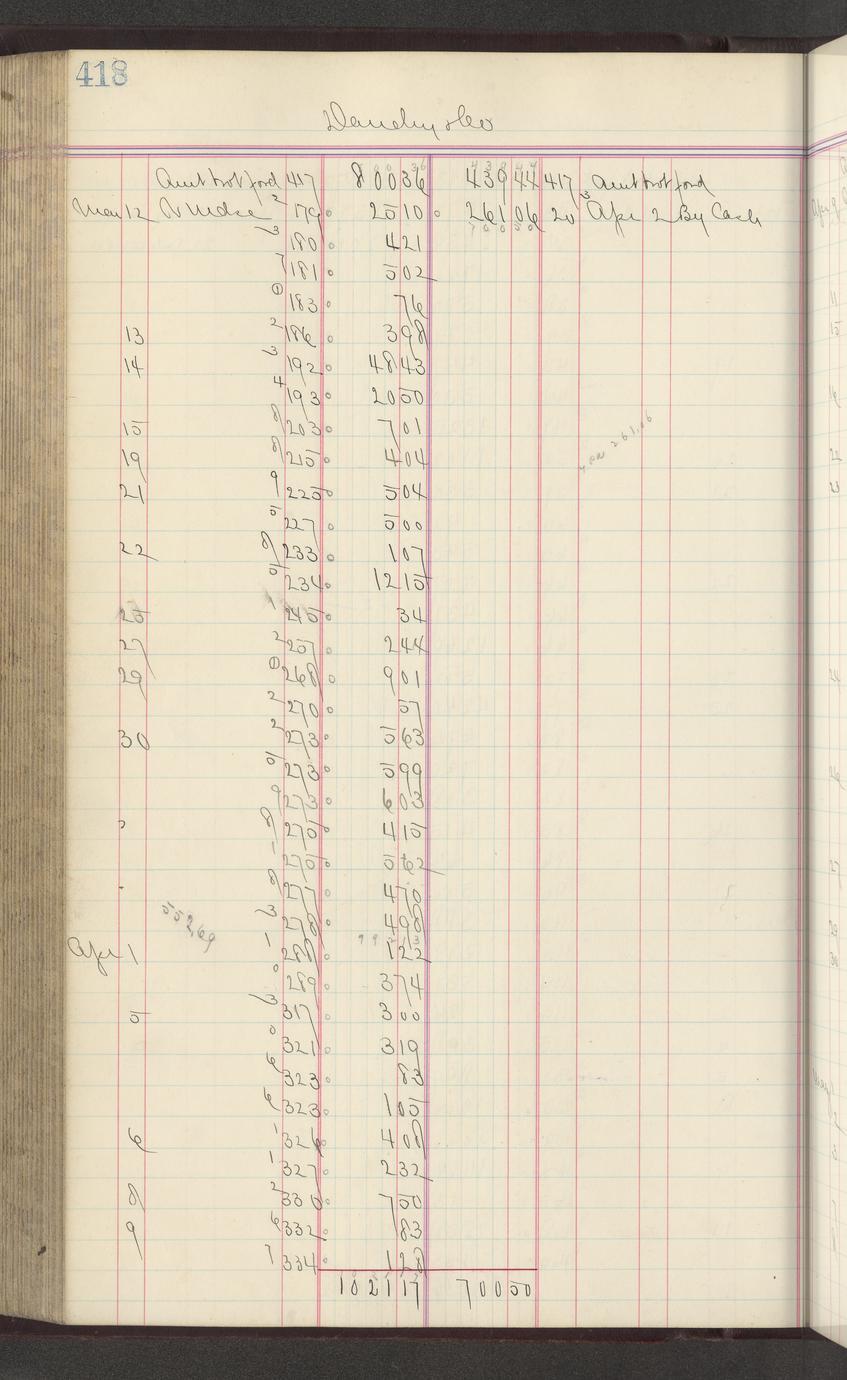 418
Amt brot ford 417 80036 43944 417 Amt brot ford
Mar 12 To Mdse 2 179 2510 26106 20 3 Apr 2 By Cash
3 180 421
7 181 502
1 183 76
13 2 186 398
14 3 192 4843
4 193 2050
15 8 203 701
19 8 215 404
21 9 225 504
5 227 500
22 8 233 107
5 234 1215
25 1 245 34
27 2 257 244
29 1 268 901
2 270 57
30 2 273 563
5 273 599
9 273 603
8 275 415
1 275 562
8 277 470
55269 3 278 498
Apr 1 1 288 122
289 374
5 3 317 300
0 321 319
6 323 83
6 323 105
6 1 326 408
1 327 232
8 2 330 750
9 6 332 83
7 334 128
102117 70050